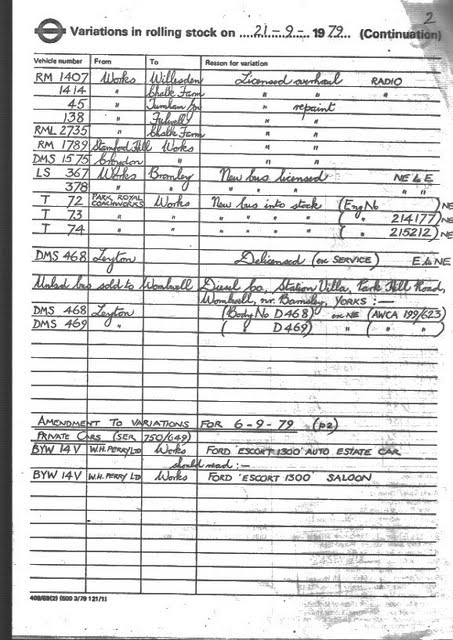 2
Variations in rolling stock on 21-9-1979 (Continuation)
Vehicle number From To Reason for variation
RM 1407 Works Willesden Licensed overhaul RADIO
1414 " Chalk Farm " " "
45 " Turnham Gn " repaint
138 " Fulwell " "
RML 2735 " Chalk Farm " "
RM 1789 Stamford Hill Works " "
DMS 1575 Croydon " " "
LS 367 Works Bromley New bus licensed NE & E
378 " " " " " " "
T 72 PARK ROYAL COACHWORKS Works New bus into stock (Eng No ) NE
T 73 " " " " " ( " 214177) NE
T 74 " " " " " ( " 215212) NE
DMS 468 Leyton Delicensed (ex SERVICE) E & NE
Unlsd bus sold to Wombwell Diesel Co, Station Villa, Park Hill Road,
Wombwell, nr. Barnsley, YORKS :—
DMS 468 Leyton (Body No D468) ex NE (AWCA 199/623)
DMS 469 " ( " D469) " ( " )
AMENDMENT TO VARIATIONS FOR 6-9-79 (p2)
PRIVATE CARS (SER 750/649)
BYW 14V W.H. PERRY LTD Works FORD 'ESCORT 1300' AUTO ESTATE CAR
should read :—
BYW 14V W.H. PERRY LD Works FORD 'ESCORT 1300' SALOON
408/69(2) (500 3/79 121/1)